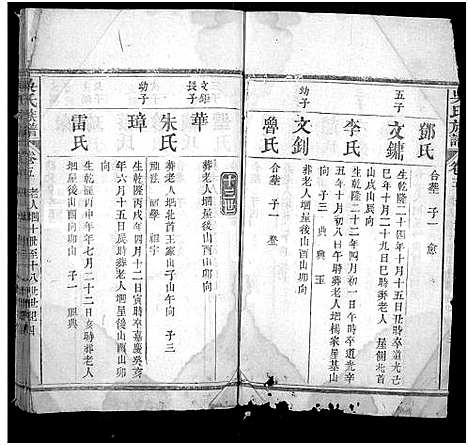 吳氏族譜
鄧氏
合塟 子一 愈
五子
文鏞
生乾隆二十四年十月十五日巳時卒道光己
年十月二十九日巳時葬老人 屋側北首
山戌山辰向
李氏
生乾隆二十二年四月初一日午時卒道光
五年十月初八日午時葬老人垇楊家屋基山
向 子三 典 典 玉
幼子
文釗
葬老人垇屋後山酉山卯向
魯氏
合塟 子一 登
十三世
文鉅
長子
華
葬老人垇屋後山酉山卯向
朱氏
葬老人垇北首王家山子山午向 子三
幼子
璋
生乾隆丙戌年四月十二日寅時卒嘉慶
年六月十五日辰時葬老人垇屋後山酉山卯
向
雷氏
生乾隆丙申年七月二十二日亥時葬老人
垇屋後山酉山卯向 子一 典
吳氏族譜
卷五
老人垇十世至十八世世紀四